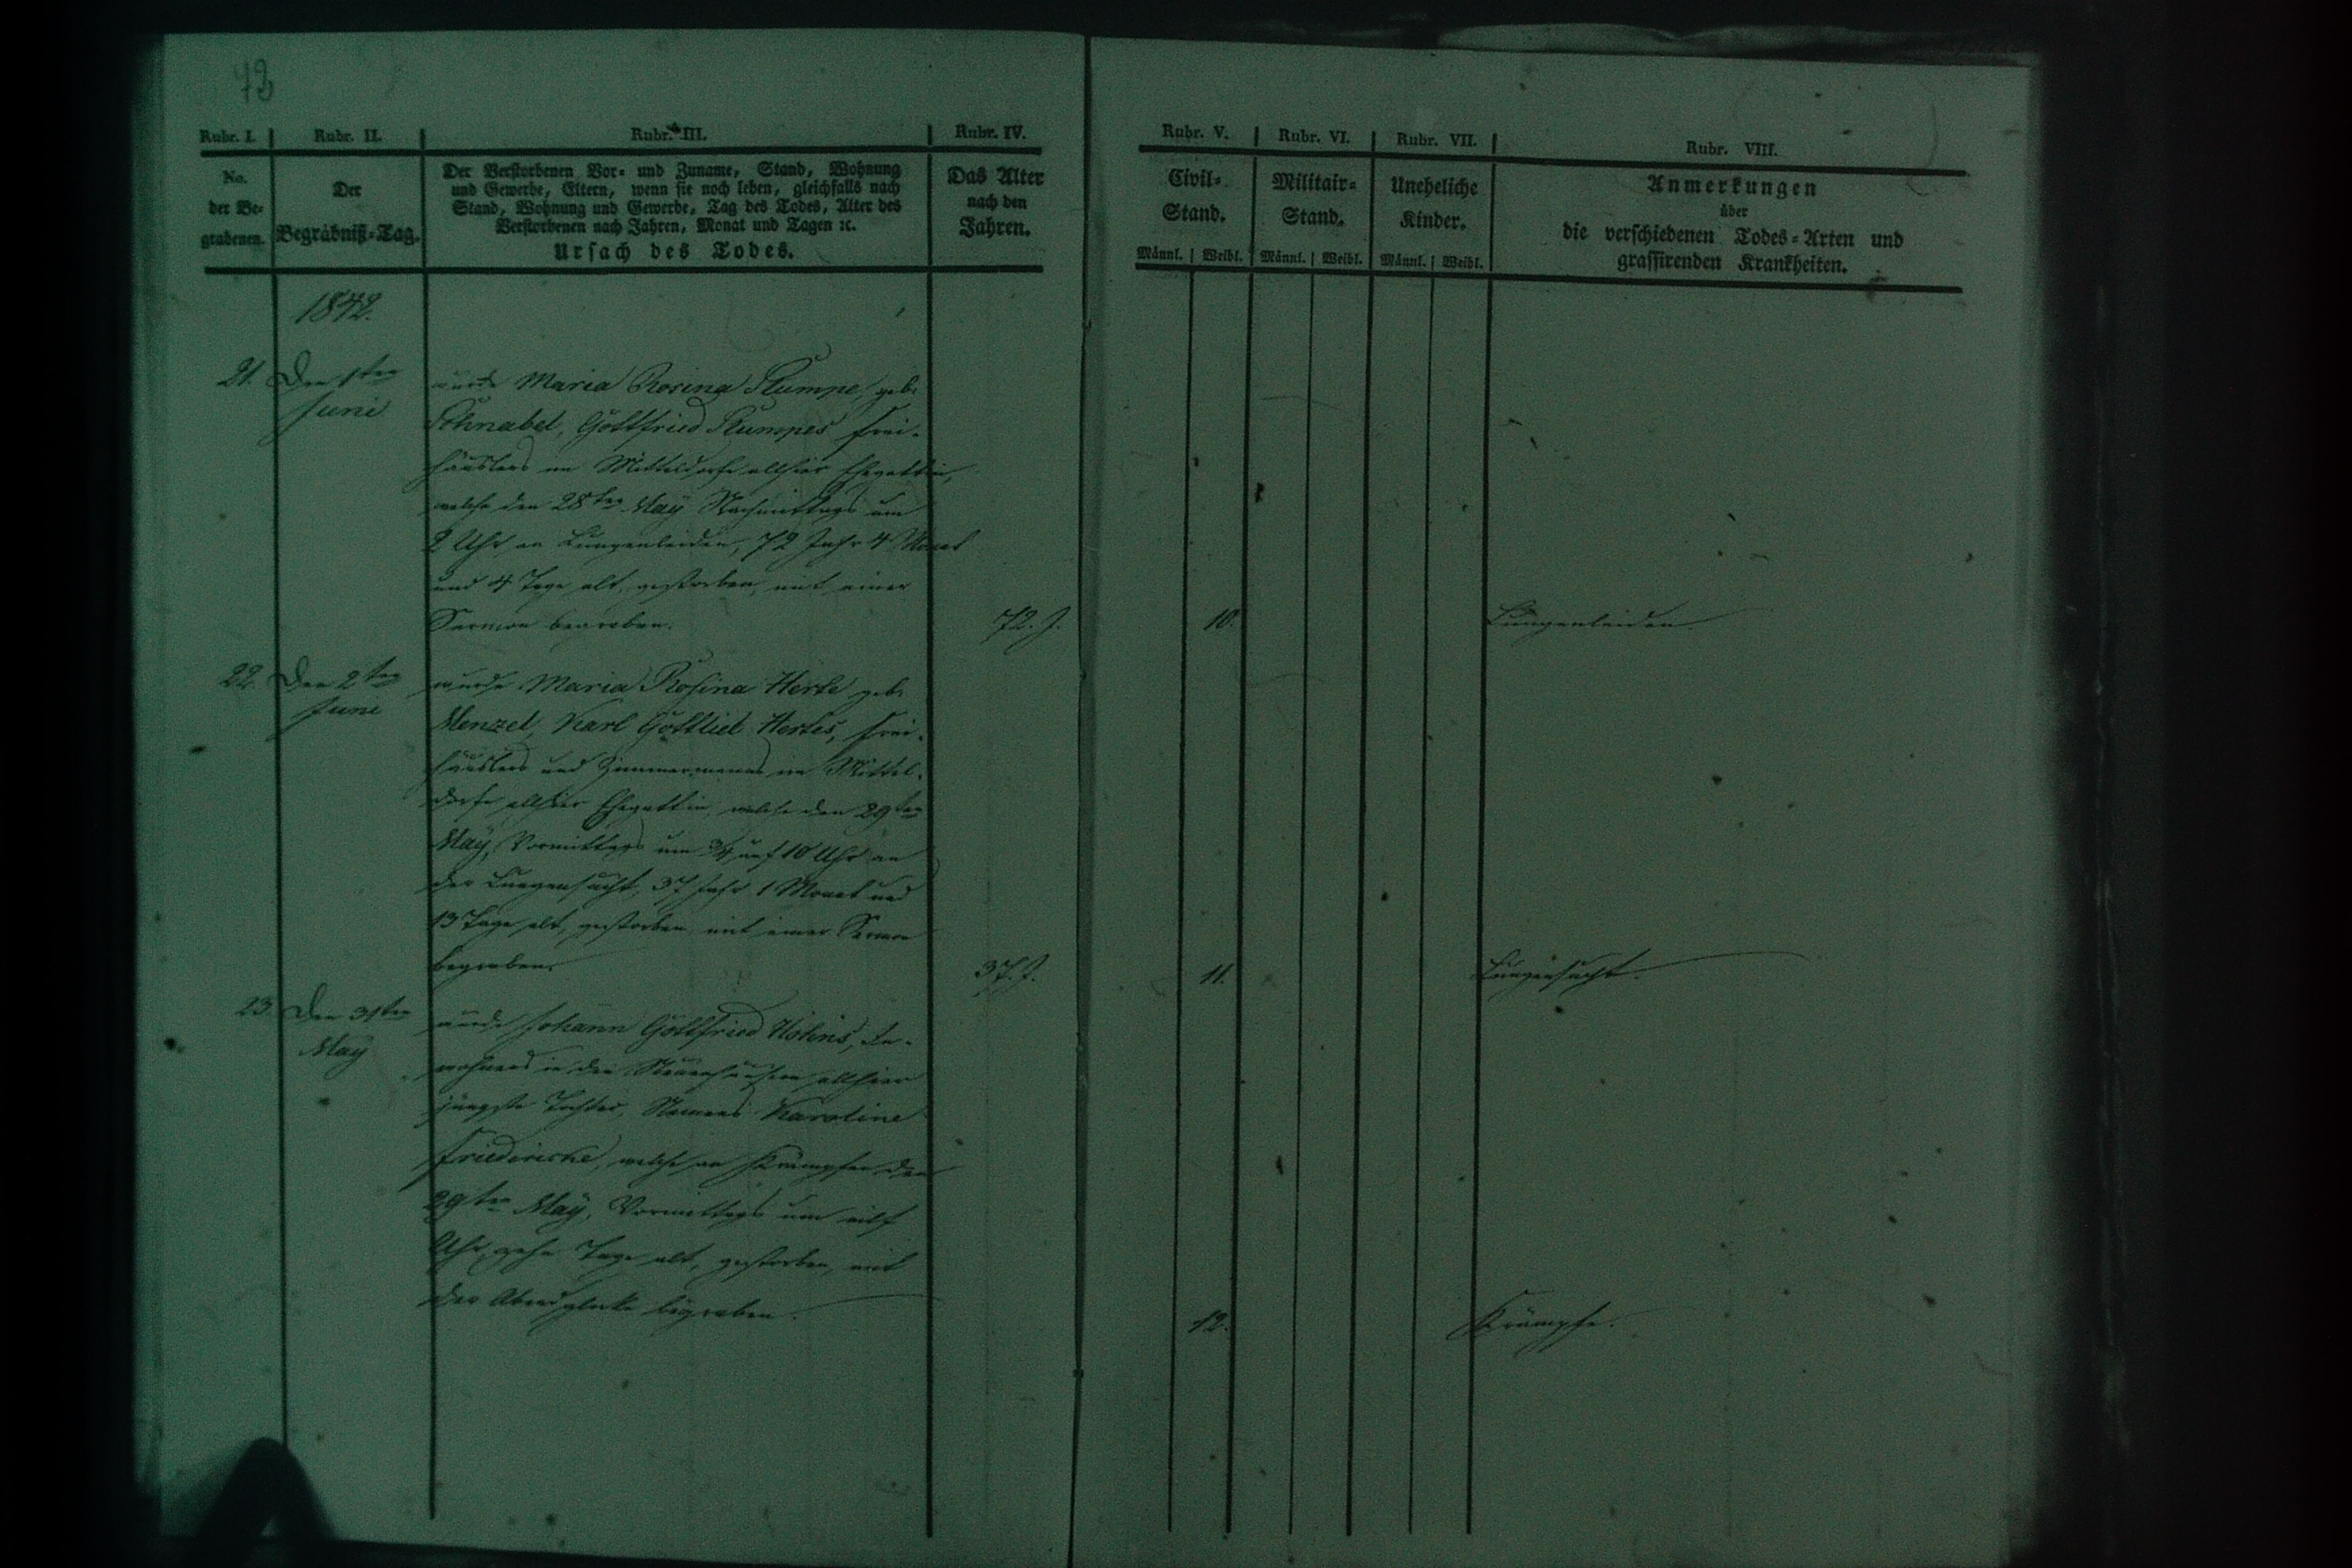 72
Rubr. I. Rubr. II. Rubr. III. Rubr. IV. Rubr. V. Rubr. VI. Rubr. VII. Rubr. VIII.
No. der Be=grabenen.
Der Begräbniß=Tag.
Der Verstorbenen Vor= und Zuname, Stand, Wohnung
und Gewerbe, Eltern, wenn sie noch leben, gleichfalls nach
Stand, Wohnung und Gewerbe, Tag des Todes, Alter des
Verstorbenen nach Jahren, Monat und Tagen ꝛc.
Ursach des Todes.
Das Alter
nach den
Jahren.
Civil=
Stand.
Männl. Weibl.
Militair=
Stand.
Männl. Weibl.
Uneheliche
Kinder.
Männl. Weibl.
Anmerkungen
über
die verschiedenen Todes=Arten und
grassirenden Krankheiten.
1842.
21. Den 1ten
Juni
wurde Maria Rosina Stumpe, geb.
Schnabel, Gottfried Stumpes frei-
häuslers im Mitteldorfe allhier Ehegattin,
welche den 28ten May Nachmittags um
2 Uhr an Lungenleiden, 72 Jahr 4 Monat
und 4 Tage alt, gestorben, mit einer
Sermon begraben.
72. J. 10. Lungenleiden.
22. Den 2ten
Juni
wurde Maria Rosina Herte geb.
Menzel, Karl Gottlieb Hertes, frei-
häuslers und Zimmermanns im Mittel-
dorfe allhier Ehegattin, welche den 29ten
May, Vormittags um 3/4 auf 10 Uhr an
der Lungensucht, 37 Jahr 1 Monat und
13 Tage alt, gestorben, mit einer Sermon
begraben.
37. J. 11. Lungensucht.
23. Den 31ten
May
wurde Johann Gottfried In-
wohners in den allhier
jüngste Tochter, Namens Karoline
Friedericke, welche an Krämpfen den
29ten May, Vormittags um eilf
Uhr, zehn Tage alt, gestorben, mit
der Abendglocke begraben.
12. Krämpfe.